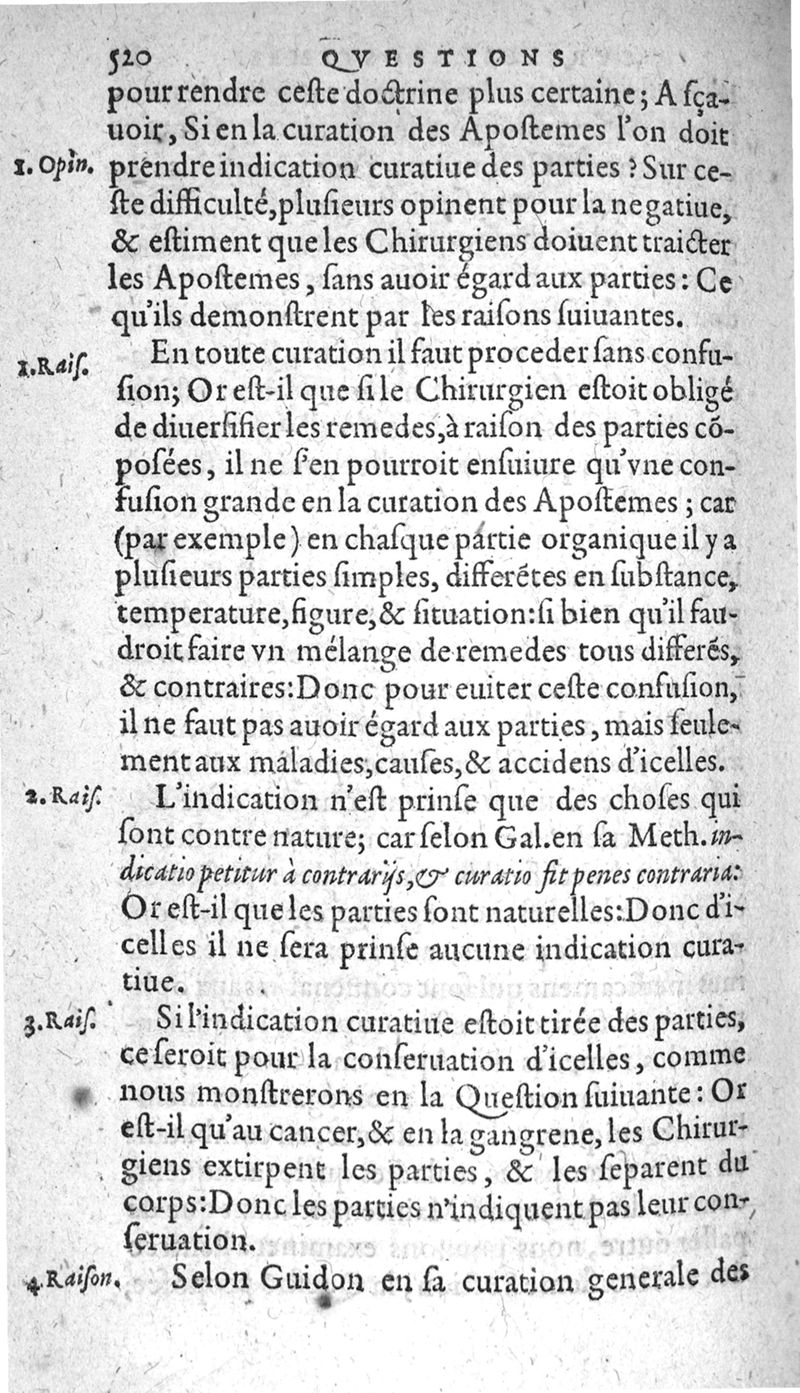 520 QVESTIONS
pour rendre ceſte doctrine plus certaine; A ſça-
uoir, Si en la curation des Apoſtemes l'on doit
1. Opin. prendre indication curatiue des parties ? Sur ce-
ſte difficulté, pluſieurs opinent pour la negatiue,
& eſtiment que les Chirurgiens doiuent traicter
les Apoſtemes, ſans auoir égard aux parties: Ce
qu'ils demonſtrent par les raiſons ſuiuantes.
1. Raiſ. En toute curation il faut proceder ſans confu-
ſion; Or eſt-il que ſi le Chirurgien eſtoit obligé
de diuerſifier les remedes, à raiſon des parties cõ-
poſées, il ne ſ'en pourroit enſuiure qu'vne con-
fuſion grande en la curation des Apoſtemes; car
(par exemple) en chaſque partie organique il y a
pluſieurs parties ſimples, differẽtes en ſubſtance,
temperature, figure, & ſituation: ſi bien qu'il fau-
droit faire vn mélange de remedes tous differẽs,
& contraires: Donc pour euiter ceſte confuſion,
il ne faut pas auoir égard aux parties, mais ſeule-
ment aux maladies, cauſes, & accidens d'icelles.
2. Raiſ. L'indication n'eſt prinſe que des choſes qui
ſont contre nature; car ſelon Gal. en ſa Meth. in-
dicatio petitur à contrarijs, & curatio fit penes contraria:
Or eſt-il que les parties ſont naturelles: Donc d'i-
celles il ne ſera prinſe aucune indication cura-
tiue.
3. Raiſ. Si l'indication curatiue eſtoit tirée des parties,
ce ſeroit pour la conſeruation d'icelles, comme
nous monſtrerons en la Queſtion ſuiuante: Or
eſt-il qu'au cancer, & en la gangrene, les Chirur-
giens extirpent les parties, & les ſeparent du
corps: Donc les parties n'indiquent pas leur con-
ſeruation.
4. Raiſon. Selon Guidon en ſa curation generale des